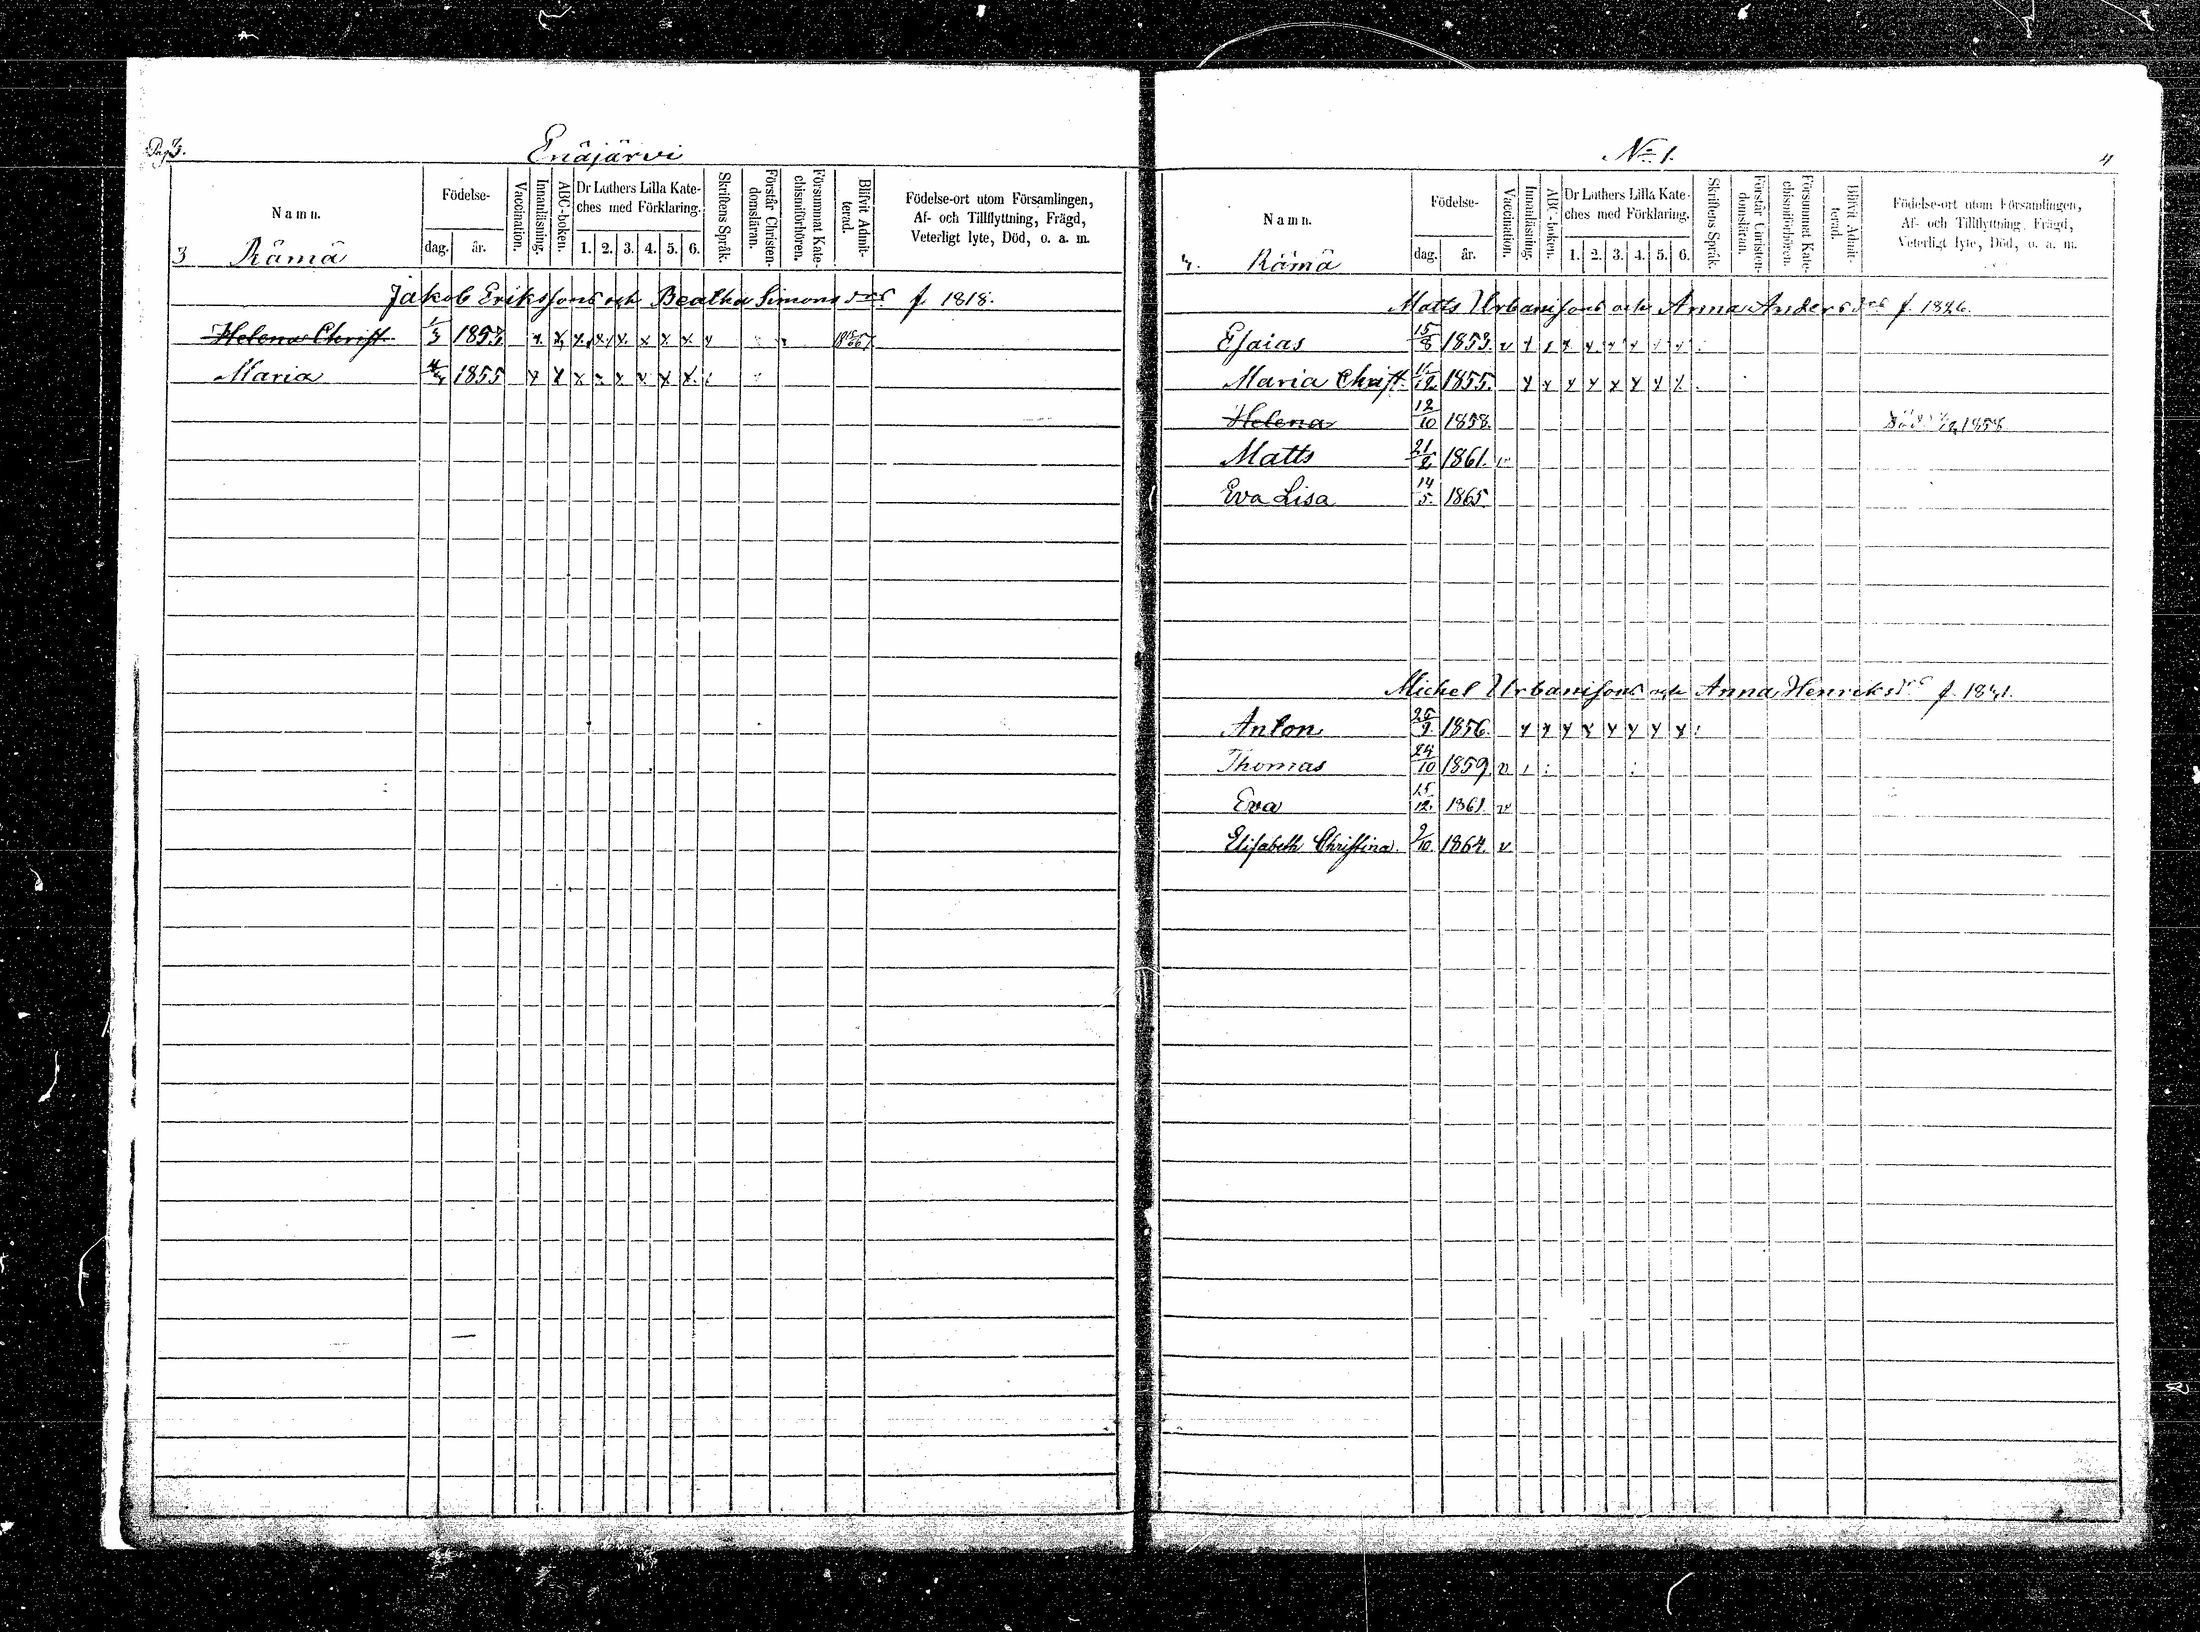 Pag 3.
Enäjärvi
Namn.
Födelse-
dag.
år.
Vaccination.
Innanläsning.
ABC-boken.
Dr Luthers Lilla Kate-
ches med Förklaring.
1. 2. 3. 4. 5. 6.
Skriftens Språk.
Förstår Christen-
domsläran.
Försummat Kate-
chismiförhören.
Blifvit Admit-
terad.
Födelse-ort utom Församlingen,
Af- och Tillflyttning, Frägd,
Veterligt lyte, Död, o. a. m.
3 Rämä
Jakob Erikssons och Beatha Simonsdrs f. 1818.
Helena Christ. 1853 x x x x x x x x
Maria 1855 x x x x x x x x
No 1.
4
Namn.
Födelse-
dag.
år.
Vaccination.
Innanläsning.
ABC-boken.
Dr Luthers Lilla Kate-
ches med Förklaring.
1. 2. 3. 4. 5. 6.
Skriftens Språk.
Förstår Christen-
domsläran.
Försummat Kate-
chismiförhören.
Blifvit Admit-
terad.
Födelse-ort utom Församlingen,
Af- och Tillflyttning, Frägd,
Veterligt lyte, Död, o. a. m.
4. Rämä
Matts Urbanssons och Anna Andersdrs f. 1826.
Esaias 15/8 1853. v x x x x x x x x
Maria Christ. 1855. x x x x x x x x
Helena 12/10 1858. 1858
Matts 21/2 1861. v
Eva Lisa 14/5. 1865
Michel Urbanssons och Anna Henriksdrs f. 1841.
Anton 25/9 1856. x x x x x x x x
Thomas 24/10 1859 v
Eva 15/12. 1861. v
Elisabeth Christina. 9/10. 1864. v